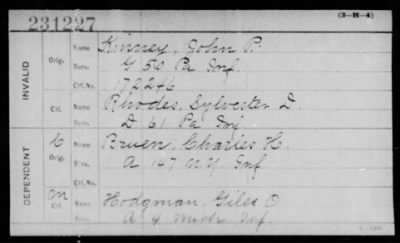 231227
(3-H-4)
INVALID
Orig.
Name Kinney, John P.
Serv. G 50 Pa Inf.
Ctf.No. 172246
Ctf.
Name Rhodes, Sylvester D.
Serv. D 61 Pa Inf
DEPENDENT
Orig.
Name Bruen, Charles H.
Serv. A 147 N.Y. Inf
Ctf.No.
Ctf.
Name Hodgman, Giles O
Serv. A 4 Inf.